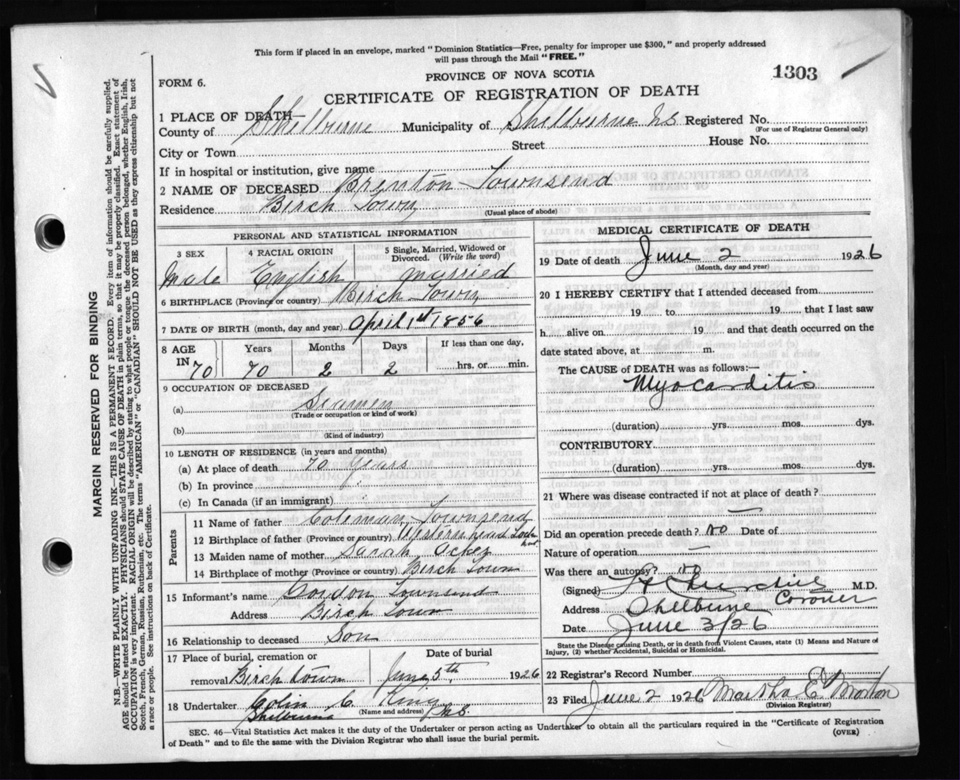 This form if placed in an envelope, marked "Dominion Statistics—Free, penalty for improper use $300," and properly addressed
will pass through the Mail "FREE."
FORM 6.
PROVINCE OF NOVA SCOTIA
1303
CERTIFICATE OF REGISTRATION OF DEATH
1 PLACE OF DEATH
County of Shelburne Municipality of Shelburne NS Registered No.
(For use of Registrar General only)
City or Town Street House No.
If in hospital or institution, give name
2 NAME OF DECEASED Brenton Townsend
Residence Birch Town
(Usual place of abode)
PERSONAL AND STATISTICAL INFORMATION
3 SEX 4 RACIAL ORIGIN 5 Single, Married, Widowed or
Divorced. (Write the word)
Male English Married
6 BIRTHPLACE (Province or country) Birch Town
7 DATE OF BIRTH (month, day and year) April 1st 1856
8 AGE Years Months Days If less than one day,
IN 70 70 2 2 hrs. or min.
9 OCCUPATION OF DECEASED
(a)
(Trade or occupation or kind of work)
(b)
(Kind of industry)
10 LENGTH OF RESIDENCE (in years and months)
(a) At place of death 70 Years
(b) In province
(c) In Canada (if an immigrant)
Parents
11 Name of father Coleman Townsend
12 Birthplace of father (Province or country)
13 Maiden name of mother Sarah Acker
14 Birthplace of mother (Province or country) Birch Town
15 Informant's name Gordon Townsend
Address Birch Town
16 Relationship to deceased Son
17 Place of burial, cremation or Date of burial
removal Birch town June 5th, 1926
18 Undertaker Colin C. King
Shelburne (Name and address) N.S.
MEDICAL CERTIFICATE OF DEATH
19 Date of death June 2 1926
(Month, day and year)
20 I HEREBY CERTIFY that I attended deceased from
19 to 19 that I last saw
h alive on 19 and that death occurred on the
date stated above, at m.
The CAUSE of DEATH was as follows:—
Myocarditis
(duration) yrs. mos. dys.
CONTRIBUTORY
(duration) yrs. mos. dys.
21 Where was disease contracted if not at place of death?
—
Did an operation precede death? No Date of
Nature of operation —
Was there an autopsy? No
(Signed) M.D.
Coroner
Address Shelburne
Date June 3/26
State the Disease causing Death, or in death from Violent Causes, state (1) Means and Nature of
Injury, (2) whether Accidental, Suicidal or Homicidal.
22 Registrar's Record Number
23 Filed June 2 1926 Martha
(Division Registrar)
SEC. 46—Vital Statistics Act makes it the duty of the Undertaker or person acting as Undertaker to obtain all the particulars required in the "Certificate of Registration
of Death" and to file the same with the Division Registrar who shall issue the burial permit. (OVER)
MARGIN RESERVED FOR BINDING
N.B.—WRITE PLAINLY WITH UNFADING INK—THIS IS A PERMANENT RECORD. Every item of information should be carefully supplied.
AGE should be stated EXACTLY. PHYSICIANS should STATE CAUSE OF DEATH in plain terms, so that it may be properly classified. Exact statement of
OCCUPATION is very important. RACIAL ORIGIN will be described by stating to what people or tongue the deceased person belonged, whether English, Irish,
Scotch, French, German, Russian, Ruthenian, etc. The terms "AMERICAN" or "CANADIAN" SHOULD NOT BE USED as they express citizenship but not
a race or people. See instructions on back of Certificate.